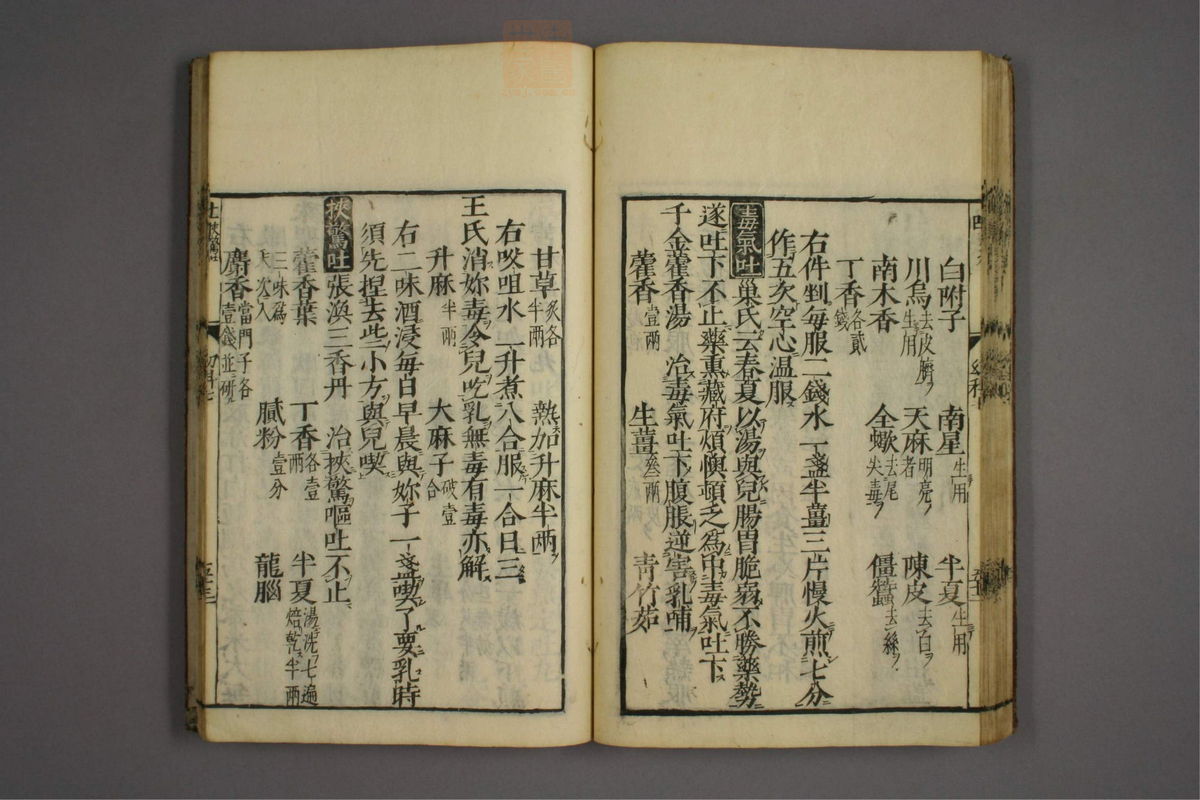 白附子 南星生用 半夏生用
川烏去皮臍生用 天麻明亮者 陳皮去白
南木香 全蠍去尾尖毒 僵蠶去絲
丁香各貳錢
右件剉每服二錢水一盞半薑三片慢火煎七分
作五次空心温服
毒氣吐 巢氏云春夏以湯與兒腸胃脆弱不勝藥勢
遂吐下不止藥熏藏府煩懊頓乏為中毒氣吐下
千金藿香湯 治毒氣吐下腹脹逆害乳哺
藿香壹兩 生薑叁兩 青竹茹
甘草炙各半兩 熱加升麻半兩
右㕮咀水一升煮八合服一合日三
王氏消妳毒令兒吃乳無毒有毒亦解
升麻半兩 大麻子破壹合
右二味酒浸每日早晨與妳子一盞喫了要乳時
須先捏去些小方與兒喫
挾驚吐 張渙三香丹 治挾驚嘔吐不止
藿香葉 丁香各壹兩 半夏湯洗七遍焙乾半兩
三味為
次入
麝香當門子各壹錢並研 膩粉壹分 龍腦